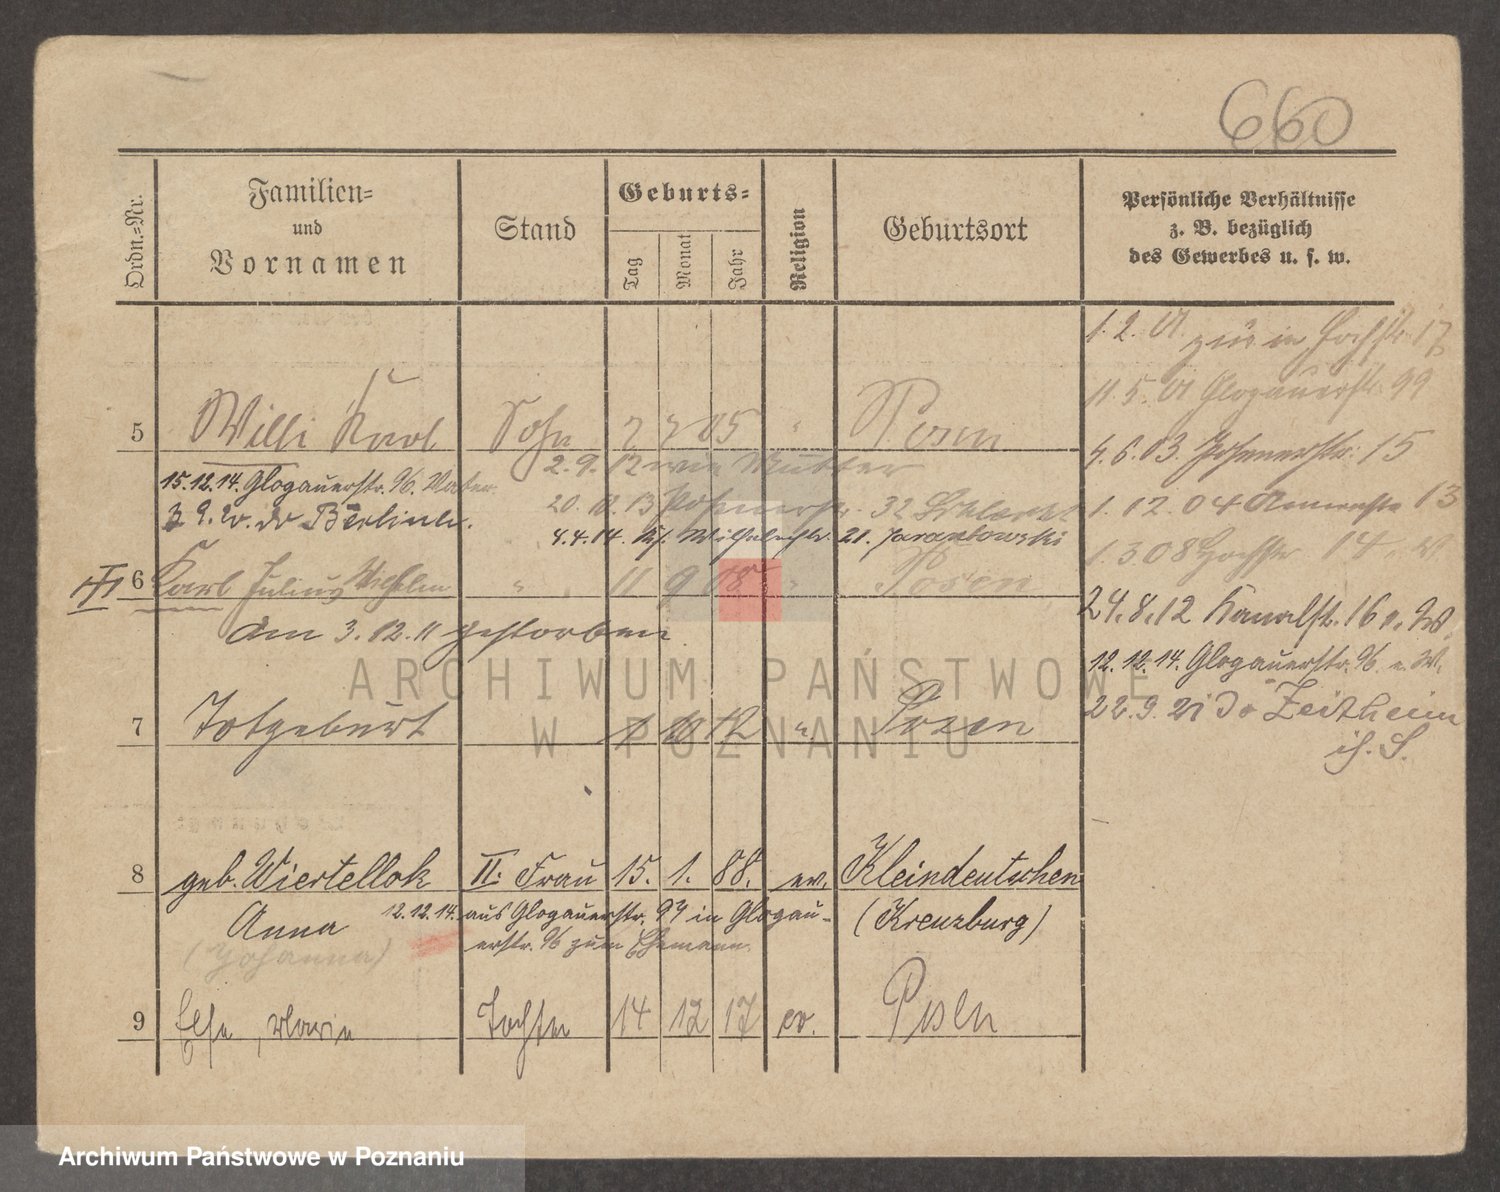 660
Ordn.=Nr.
Familien=
und
Vornamen
Stand
Geburts=
Tag
Monat
Jahr
Religion
Geburtsort
Persönliche Verhältnisse
z. B. bezüglich
des Gewerbes u. s. w.
1. 2. 01 in Hochstr. 17
11. 5. 01 Glogauerstr. 99
4. 6. 03. Posenerstr. 15
1. 12. 04 13
1. 3. 08 Hochstr. 14 v. W
24. 8. 12 Kanalstr. 16 v. W.
12. 12. 14. Glogauerstr. 96 v. W.
22. 9. 21 do Zeitheim
i/. S.
5 Willi Karl Sohn 7 7 05 " Posen
15. 12. 14. Glogauerstr. 96. Vater
2. 9. 12 wie Mutter
3 9. 20. do Berlin
20. 12. 13 32
4. 4. 14. 21. Jarantowski
6 Karl Julius Wilhelm " 11 9 08 " Posen
am 3. 12. 11 gestorben
7 Totgeburt 12 " Posen
8 geb. Wiertellok II. Frau 15. 1. 88. ev. Kleindeutschen
Anna
12. 12. 14. aus Glogauerstr. 94 in Glogau-
(Kreuzburg)
erstr. 96 zum Ehemann.
(Johanna)
9 Else, Marie Tochter 14 12 17 ev. Posen
ARCHIWUM PAŃSTWOWE
W POZNANIU
Archiwum Państwowe w Poznaniu